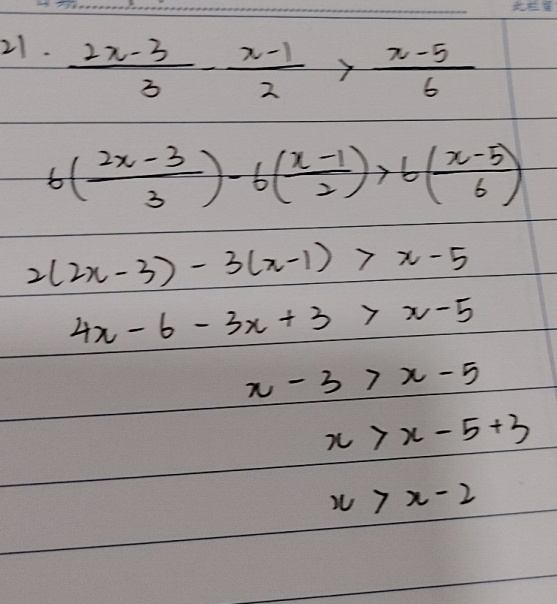 21. (2x-3)/3 - (x-1)/2 > (x-5)/6
6((2x-3)/3) - 6((x-1)/2) > 6((x-5)/6)
2(2x-3) - 3(x-1) > x-5
4x-6-3x+3 > x-5
x-3 > x-5
x > x-5+3
x > x-2